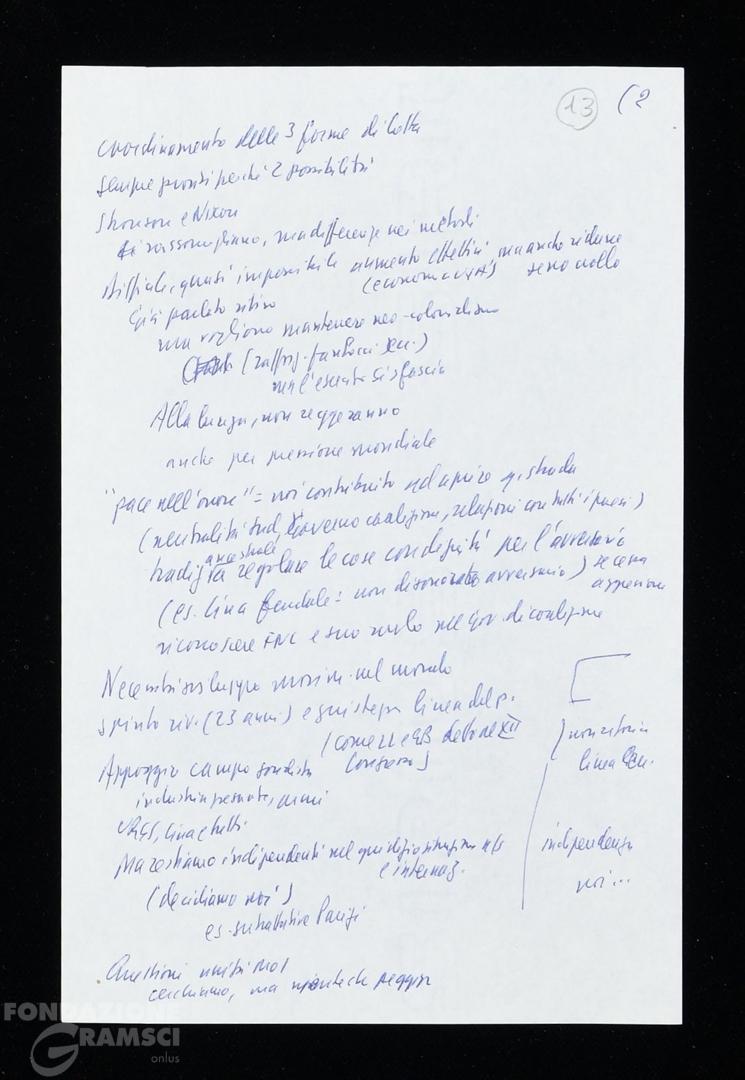 13 (2
coordinamento delle 3 forme di lotta
sempre pronti perché 2 possibilità
Johnson e Nixon
si rassomigliano, ma differenze nei metodi
difficile, quasi impossibile aumento effettivi, ma anche ridurre
(economia USA) sono nello
Già parlato ritiro
ma vogliono mantenere neo-colonialismo
(raff. fantocci ecc.)
ma l'esercito si sfascia
Alla lunga, non reggeranno
anche per pressione mondiale
"pace nell'onore" = noi contribuito ad aprire q. strada
(neutralità Sud, Governo coalizione, relazioni con tutti i paesi)
ancestrale
tradiz. regolare le cose con dignità per l'avversario
(es. Cina feudale: non disonorato avversario) se cessa
aggressione
riconoscere FNL e suo ruolo nel gov. di coalizione
Necessità sviluppo movim. nel mondo
spinto riv. (23 anni) e giustezza linea del p.
(come LL e GB detto al XII
Congresso)
Appoggio campo socialista
industria pesante, armi
URSS, Cina e tutti
Ma restiamo indipendenti nel giudizio situazione
e internaz.
(decidiamo noi)
es. su trattative Parigi
Questioni unità moi
cerchiamo, ma niente di peggio
non
linea
indipendenza
noi...
FONDAZIONE
GRAMSCI
onlus